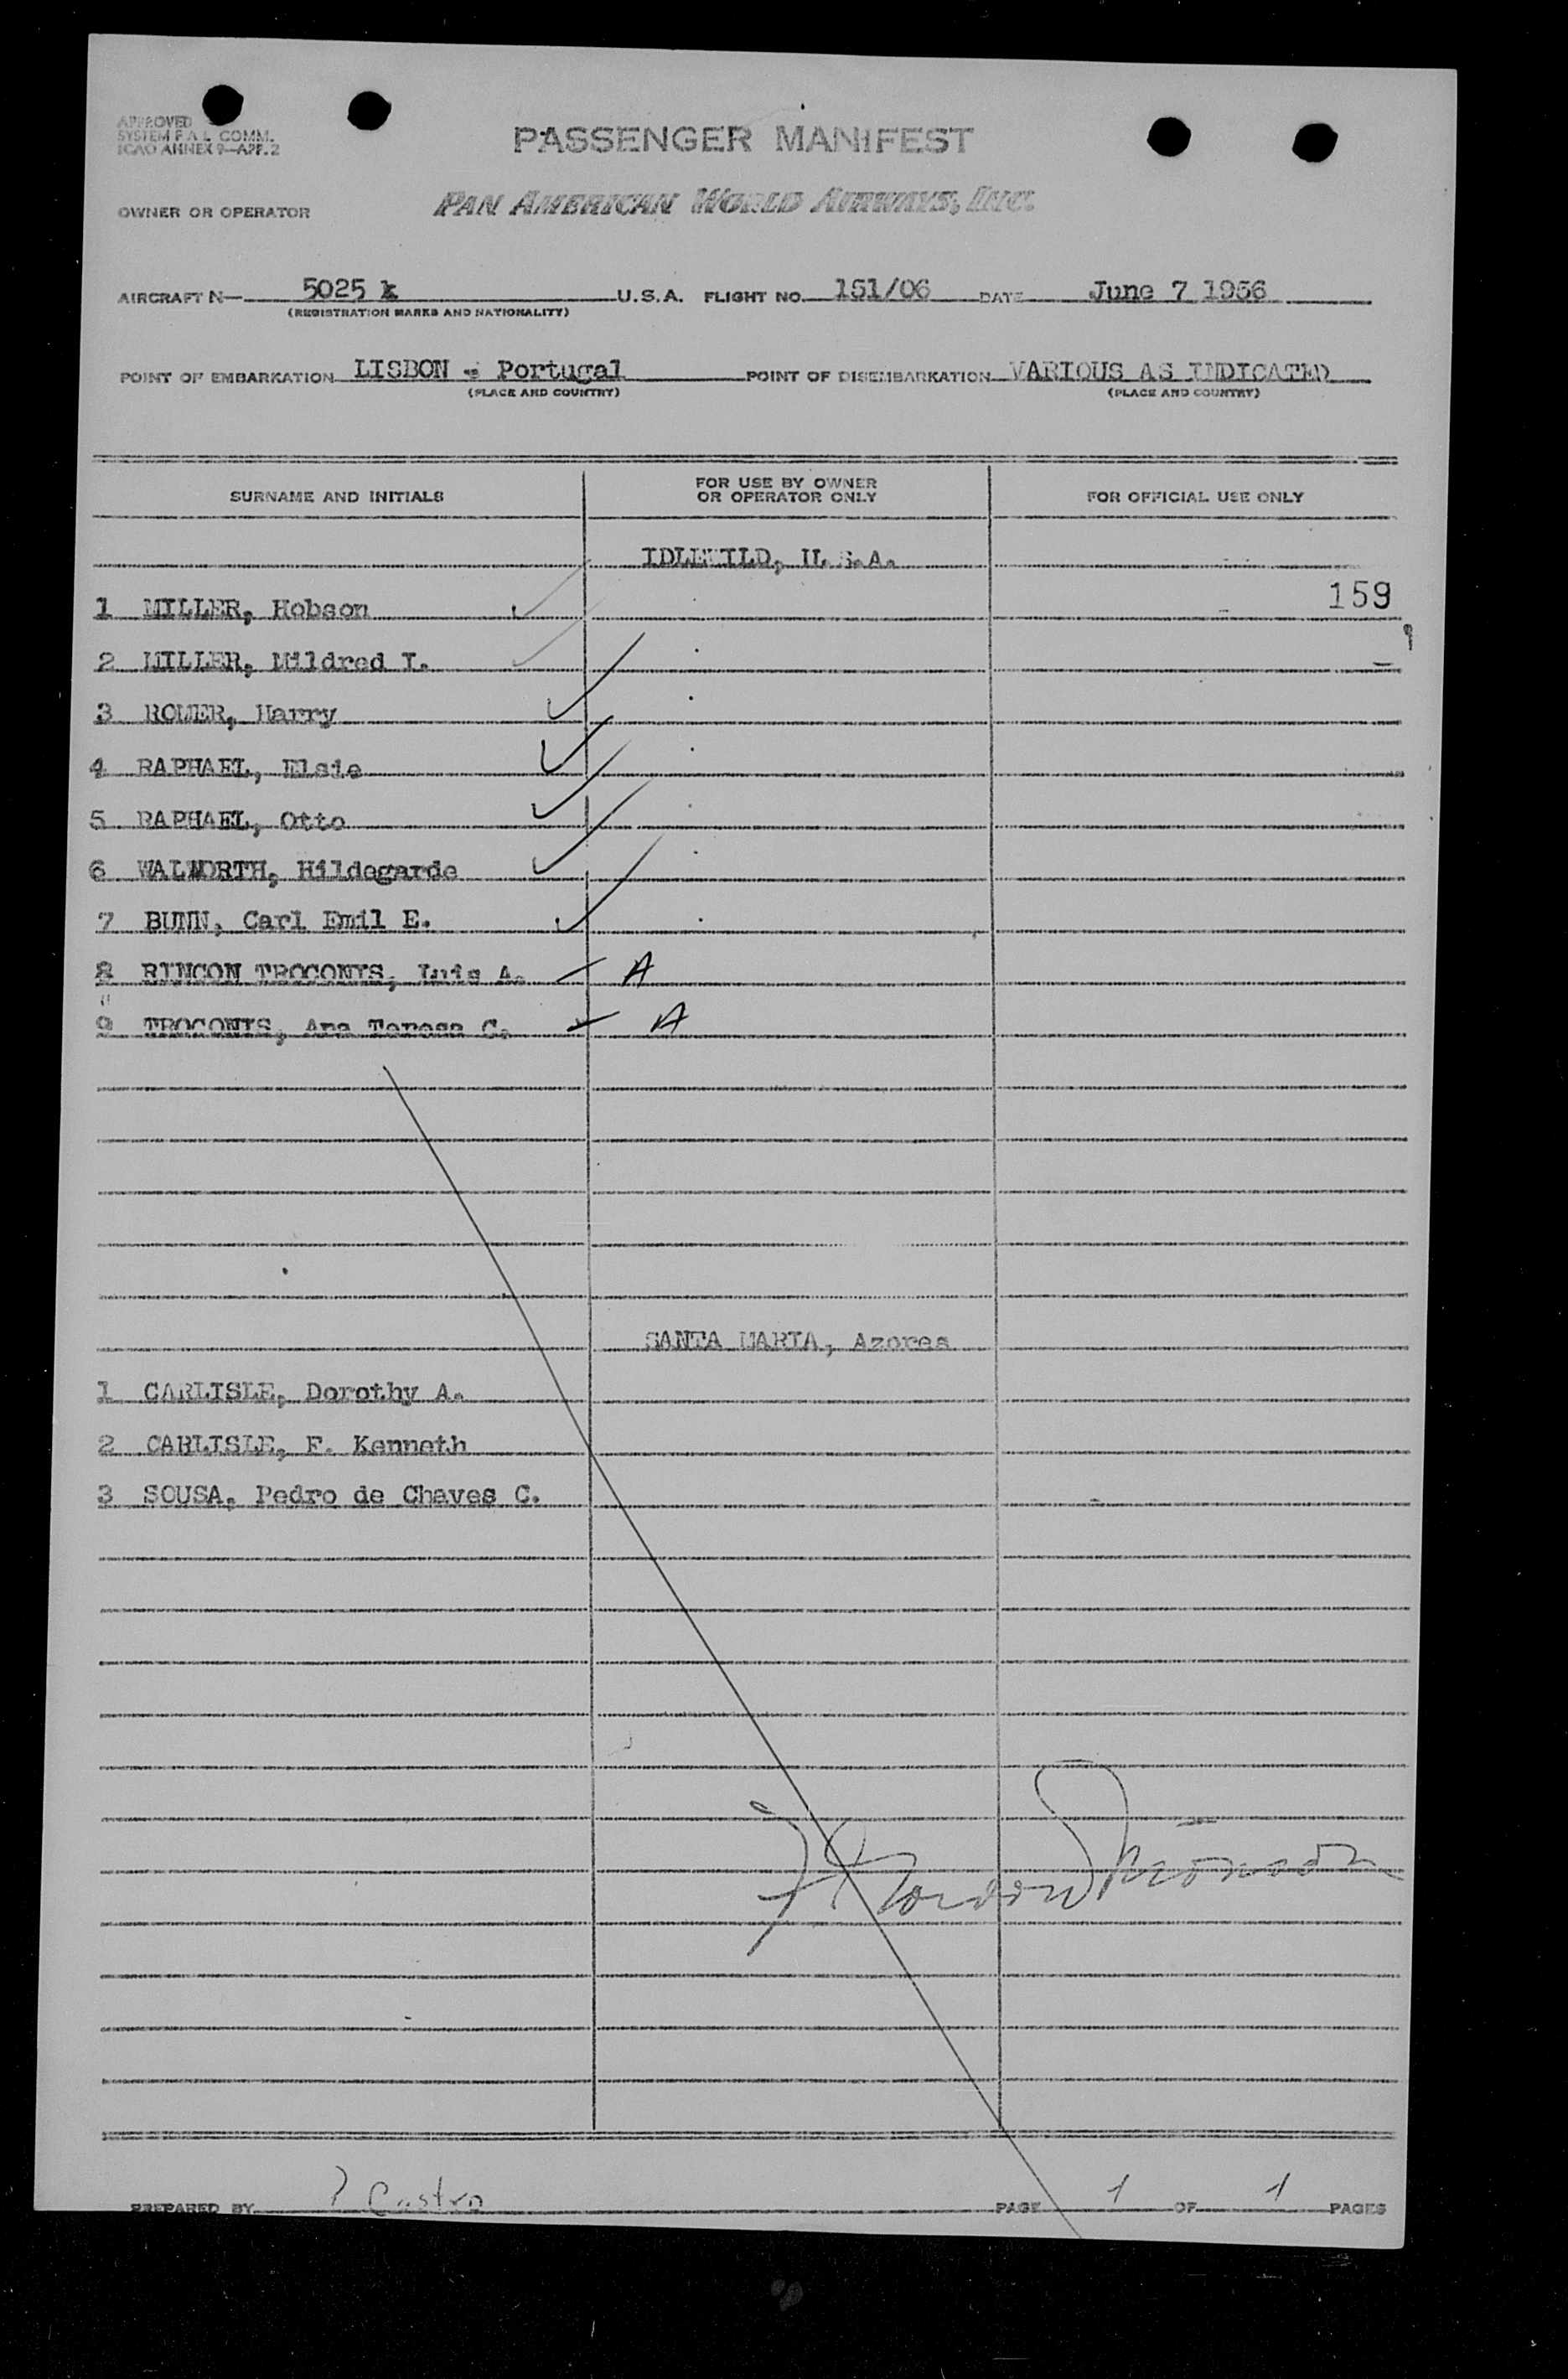 APPROVED
SYSTEM F.A.L. COMM.
ICAO ANNEX 9—APP. 2
PASSENGER MANIFEST
OWNER OR OPERATOR PAN AMERICAN WORLD AIRWAYS, INC.
AIRCRAFT N— 5025 k U.S.A. FLIGHT NO. 151/06 DATE June 7 1956
(REGISTRATION MARKS AND NATIONALITY)
POINT OF EMBARKATION LISBON - Portugal POINT OF DISEMBARKATION VARIOUS AS INDICATED
(PLACE AND COUNTRY) (PLACE AND COUNTRY)
SURNAME AND INITIALS FOR USE BY OWNER OR OPERATOR ONLY FOR OFFICIAL USE ONLY
IDLEWILD, U.S.A.
1 MILLER, Hobson 159
2 MILLER, Mildred I.
3 ROMER, Harry
4 RAPHAEL, Elsie
5 RAPHAEL, Otto
6 WALWORTH, Hildegarde
7 BUNN, Carl Emil E.
8 RINCON TROCONIS, Luis A. A
9 TROCONIS, Ana Teresa C. A
SANTA MARIA, Azores
1 CARLISLE, Dorothy A.
2 CARLISLE, F. Kenneth
3 SOUSA, Pedro de Chaves C.
PREPARED BY Castro PAGE 1 OF 1 PAGES